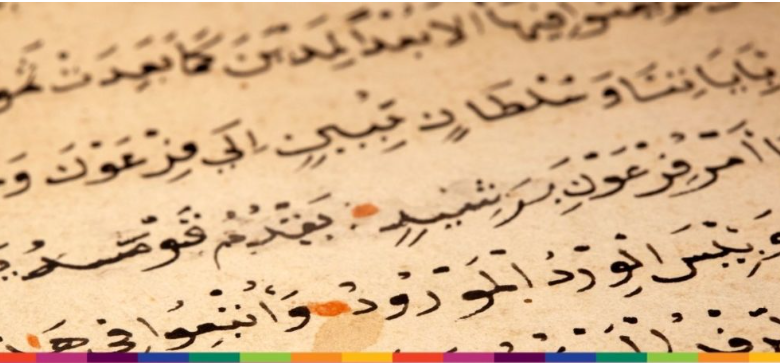 فيها ألا بعدا لمدين كما بعدت ثمو
بِآيَاتِنَا وَسُلْطَانٍ مُّبِينٍ إِلَى فِرْعَوْنَ وَ
أَمْرُ فِرْعَوْنَ بِرَشِيدٍ يَقْدُمُ قَوْمَهُ
وَبِئْسَ الْوِرْدُ الْمَوْرُودُ وَأُتْبِعُوا فِي هَ